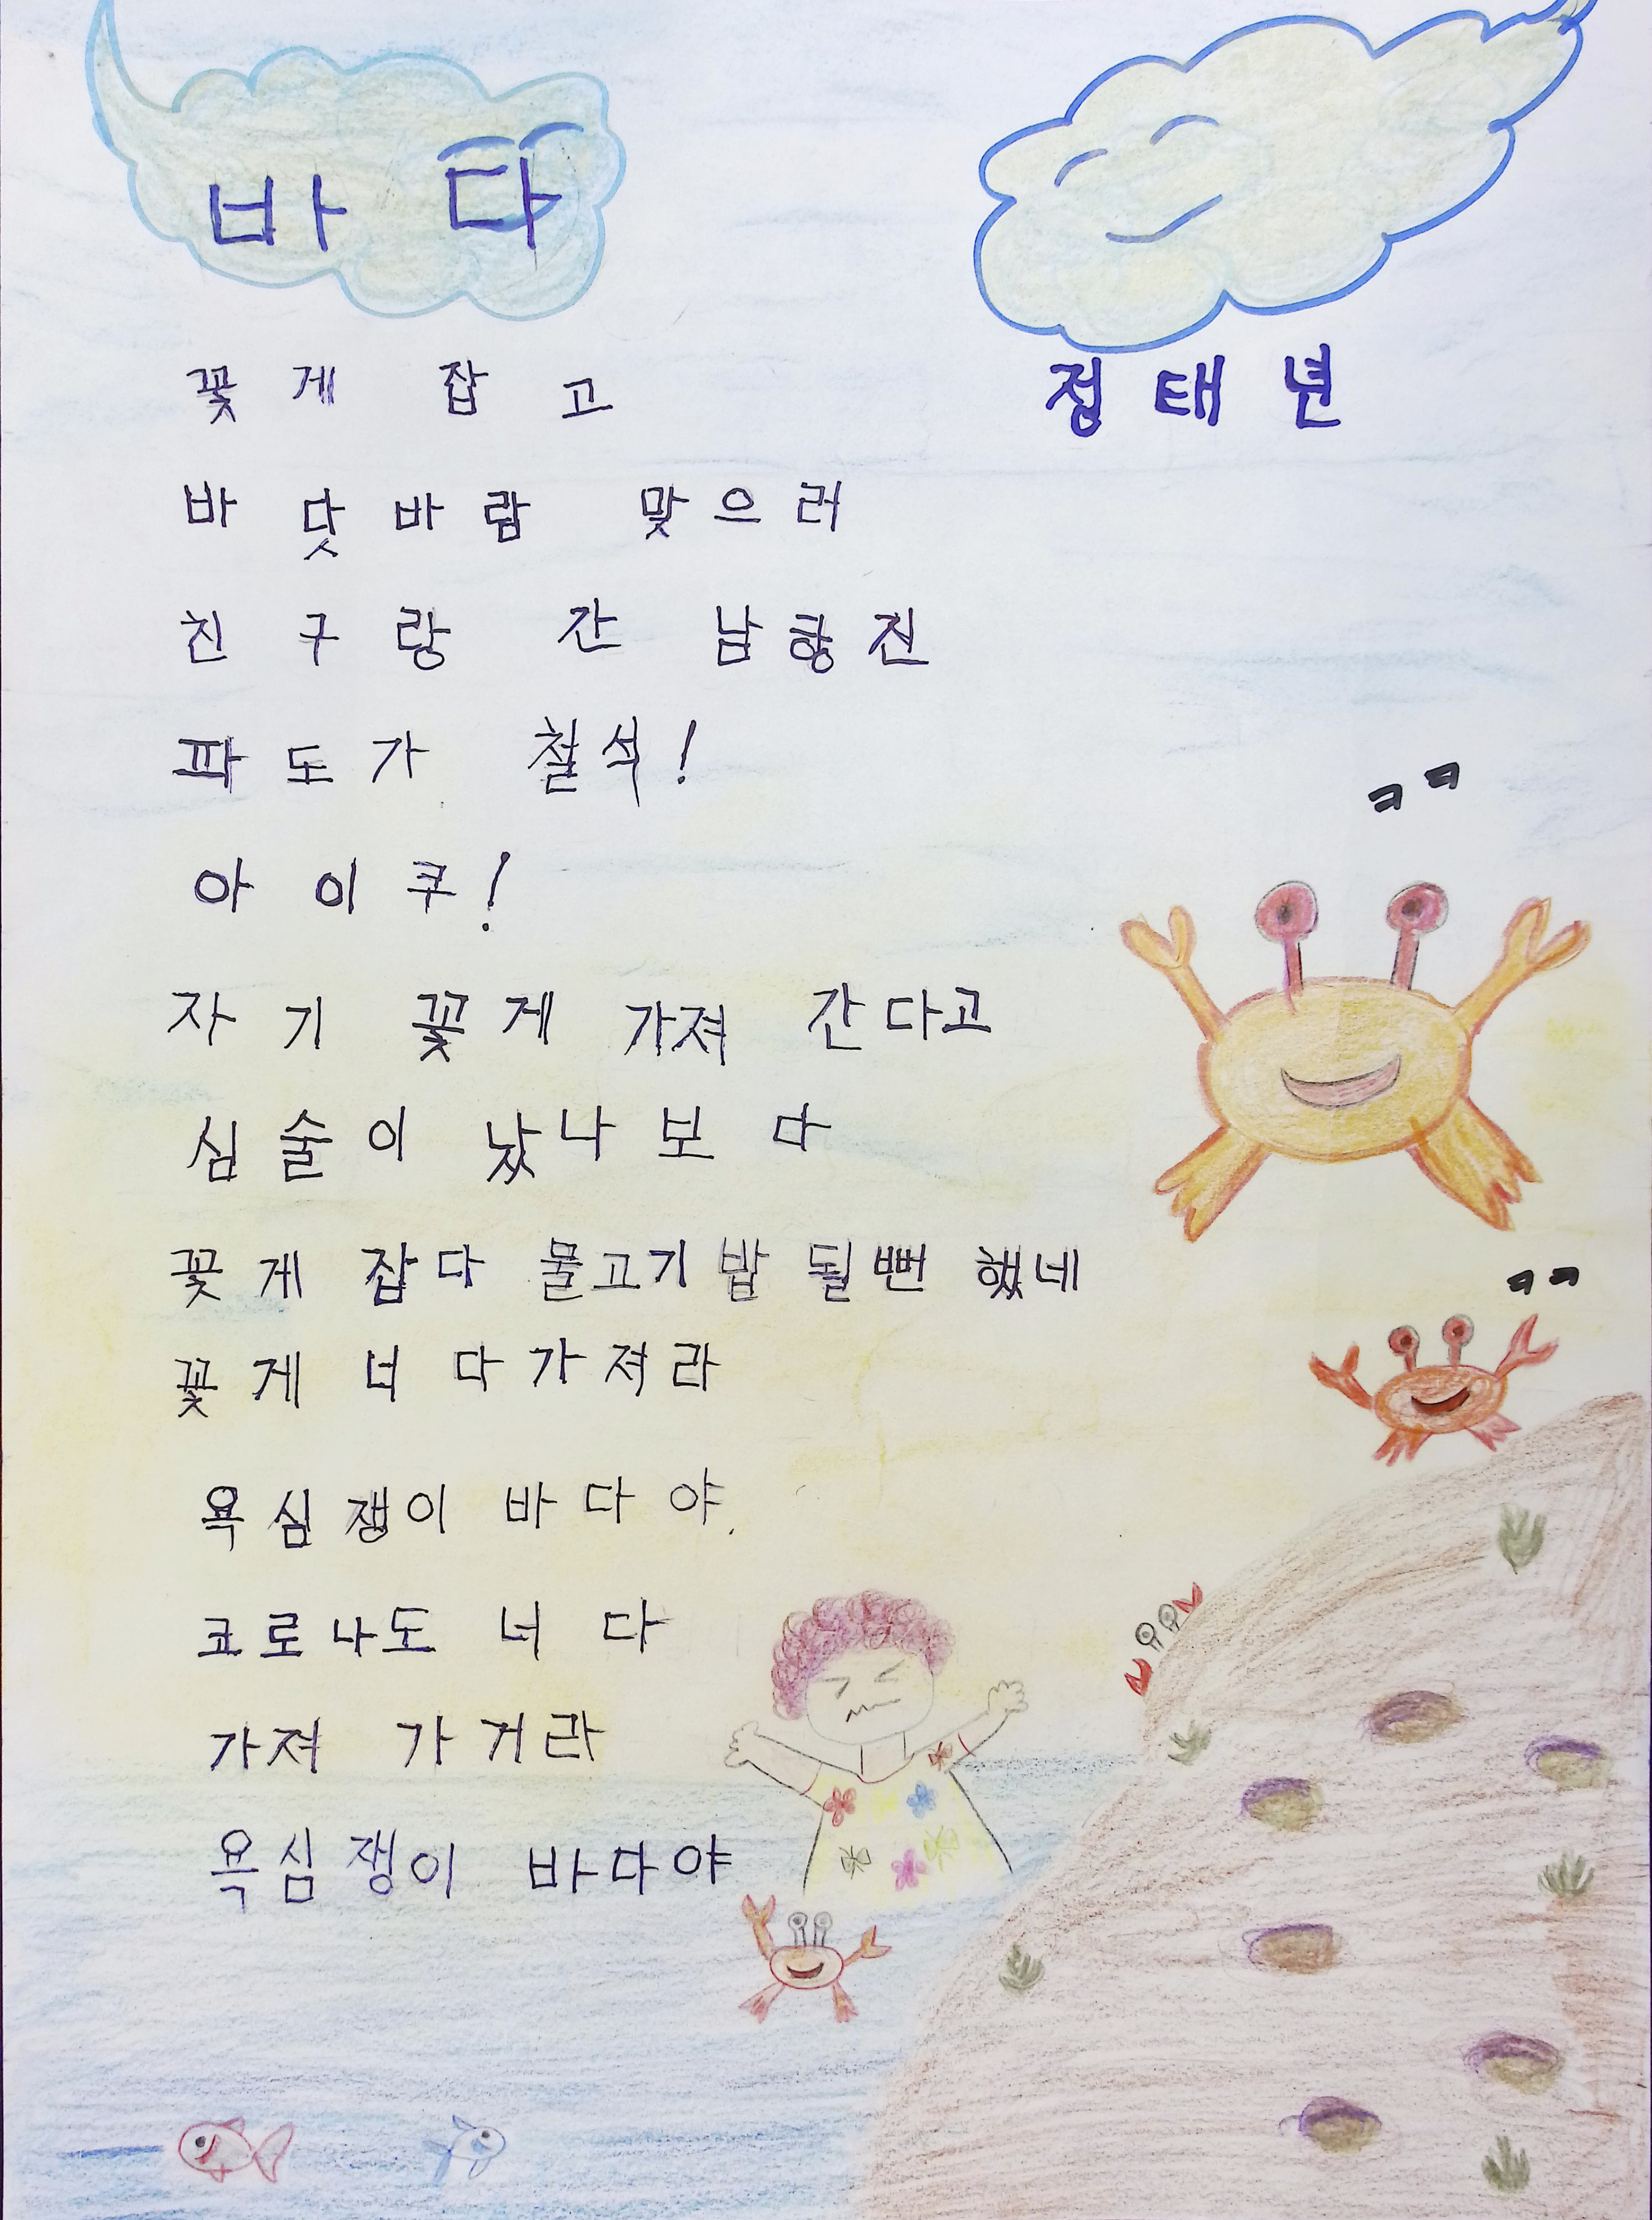 바다
정태년
꽃게 잡고
바닷바람 맞으러
친구랑 간 남항진
파도가 철석!
아이쿠!
자기 꽃게 가져 간다고
심술이 났나 보다
꽃게 잡다 물고기 밥 될뻔 했네
꽃게 너 다 가져라
욕심쟁이 바다야.
코로나도 너 다
가져 가거라
욕심쟁이 바다야
ㅋㅋ
ㅋㅋ